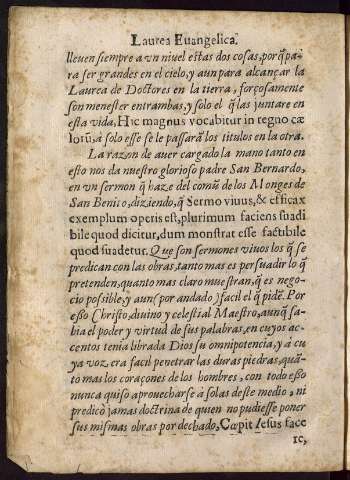 Laurea Euangelica.
lleuen siempre a vn niuel estas dos cosas, porq̃ pa-
ra ser grandes en el cielo, y aun para alcançar la
Laurea de Doctores en la tierra, forçosamente
son menester entrambas, y solo el q̃ las juntare en
esta vida, Hic magnus vocabitur in regno cæ
lorũ, a solo esse se le passarã los titulos en la otra.
La razon de auer cargado la mano tanto en
esto nos da nuestro glorioso padre San Bernardo,
en vn sermon q̃ haze del comũ de los Monges de
San Benito, diziendo, q̃ Sermo viuus, & efficax
exemplum operis est, plurimum faciens suadi
bile quod dicitur, dum monstrat esse factibile
quod suadetur. Que son sermones viuos los q̃ se
predican con las obras, tanto mas es persuadir lo q̃
pretenden, quanto mas claro muestran, q̃ es nego-
cio possible, y aun (por andado) facil el q̃ pidẽ. Por
esso Christo, diuino y celestial Maestro, aunq̃ sa-
bia el poder y virtud de sus palabras, en cuyos ac-
centos tenia librada Dios su omnipotencia, y à cu
ya voz era facil penetrar las duras piedras, quã-
to mas los coraçones de los hombres, con todo esso
nunca quiso aprouecharse à solas deste medio, ni
predicò jamas doctrina de quien no pudiesse poner
sus mismas obras por dechado, Cœpit Iesus face
re,